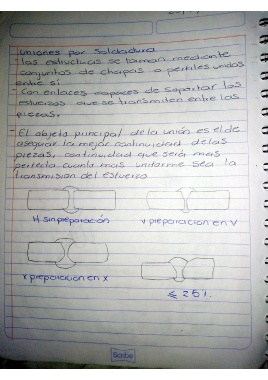 uniones por Soldadura
- las estructuras se forman mediante
conjuntos de chapas o perfiles unidos
entre si
- Con enlaces capaces de soportar los
esfuerzos que se transmiten entre las
piezas.
- El objeto principal de la union es el de
asegurar la mejor continuidad de las
piezas, continuidad que será mas
perfecta cuanto mas uniforme sea la
transmision del esfuerzo
H sin preparación
V preparacion en V
X preparacion en X
≤ 25%
Scribe